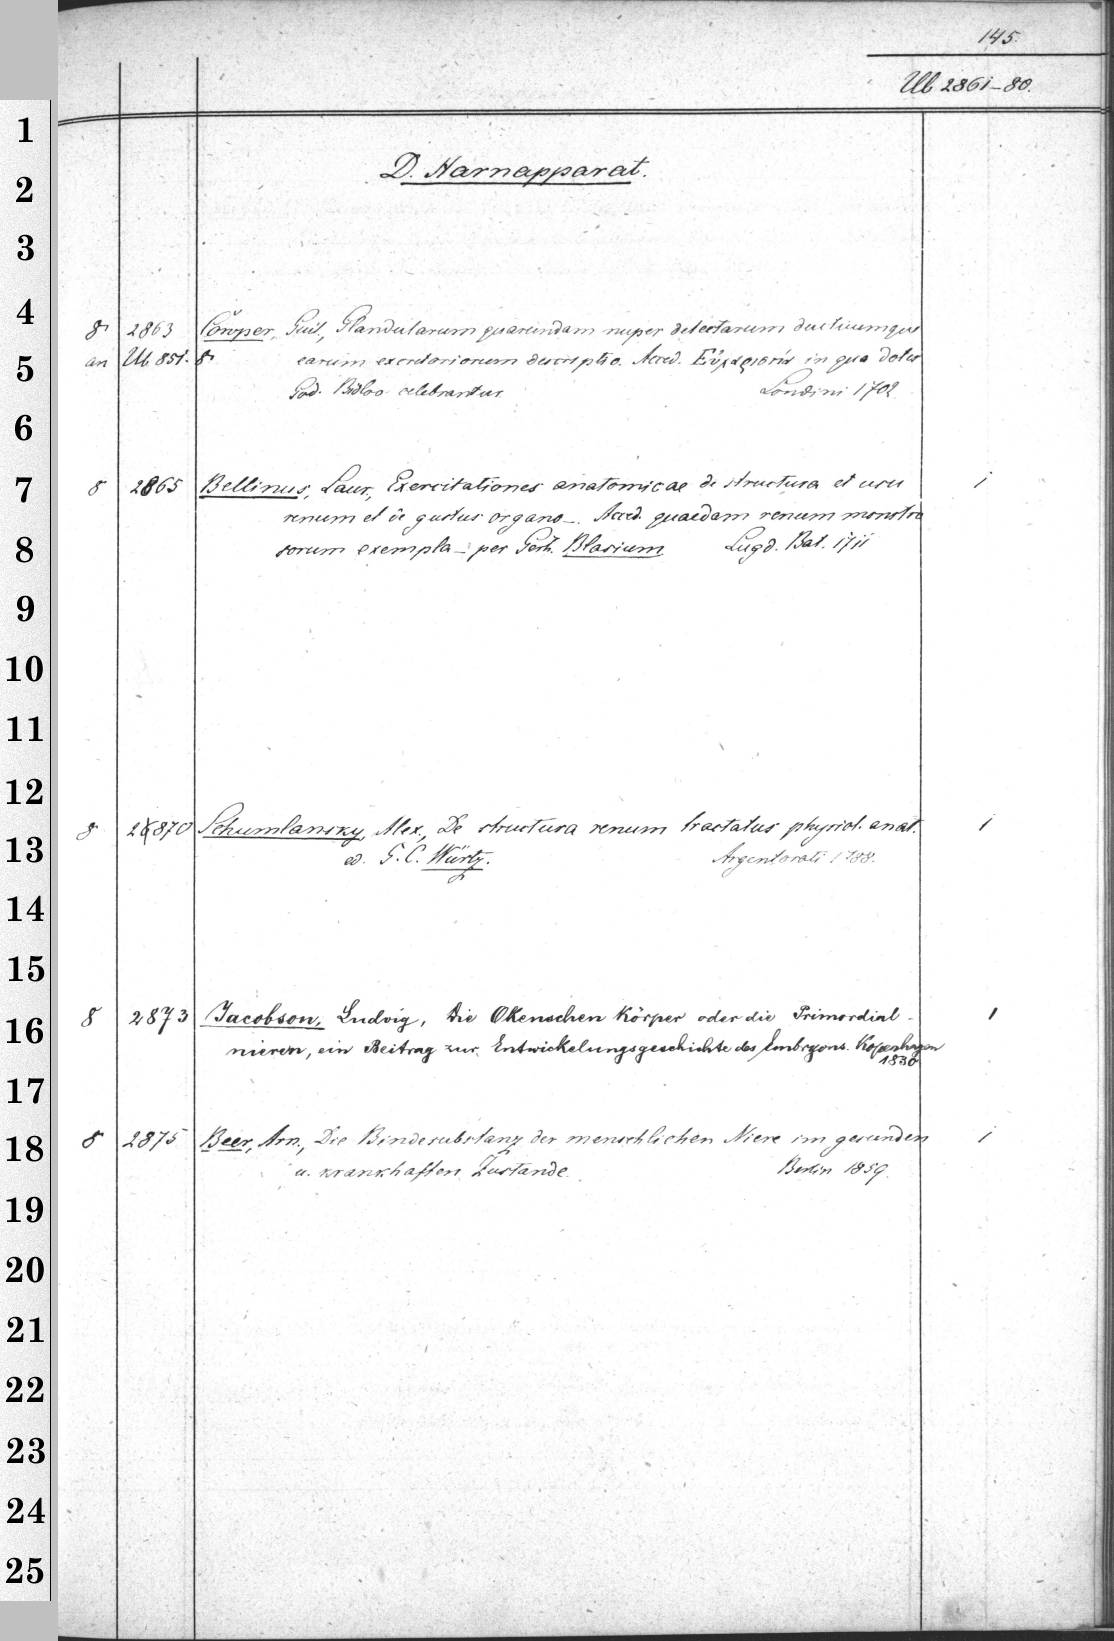 145.
Ub 2861-80.
1
D. Harnapparat.
2
3
4
8° 2863 Cowper, Guil., Glandularum quarundam nuper detectarum ductuumque
an Ub 851. 8° earum excretoriorum descriptio. Acced. in qua dotes
5
God. Bidloo celebrantur. Londini 1702
6
7
8 2865 Bellinus, Laur., Exercitationes anatomicae de structura et usu 1
renum et de gustus organo_. Acced. quaedam renum monstro
8
sorum exempla_ per Gerh. Blasium Lugd. Bat. 1711
9
10
11
12
8 2870 Schumlansky, Alex., De structura renum tractatus physiol. anat. 1
13
ed. G. C. Würtz. Argentorati 1788.
14
15
8 2873 Jacobson, Ludvig, Die Okenschen Körper oder die Primordial- 1
16
nieren, ein Beitrag zur Entwickelungsgeschichte des Embryons. Kopenhagen
1830
17
8 2875 Beer, Arn., Die Bindesubstanz der menschlichen Niere im gesunden 1
18
u. krankhaften Zustande. Berlin 1859.
19
20
21
22
23
24
25